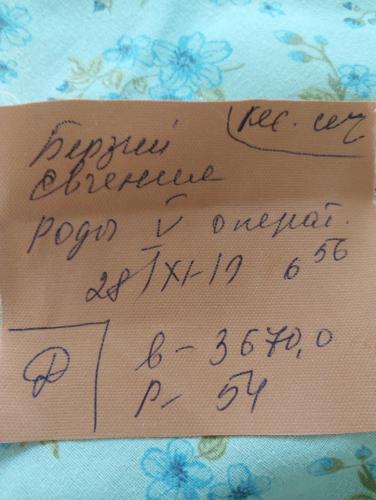 кес. сеч
Берзий
Евгения
Роды V операт.
28/XI-17 6 56
в - 3670,0
р - 54